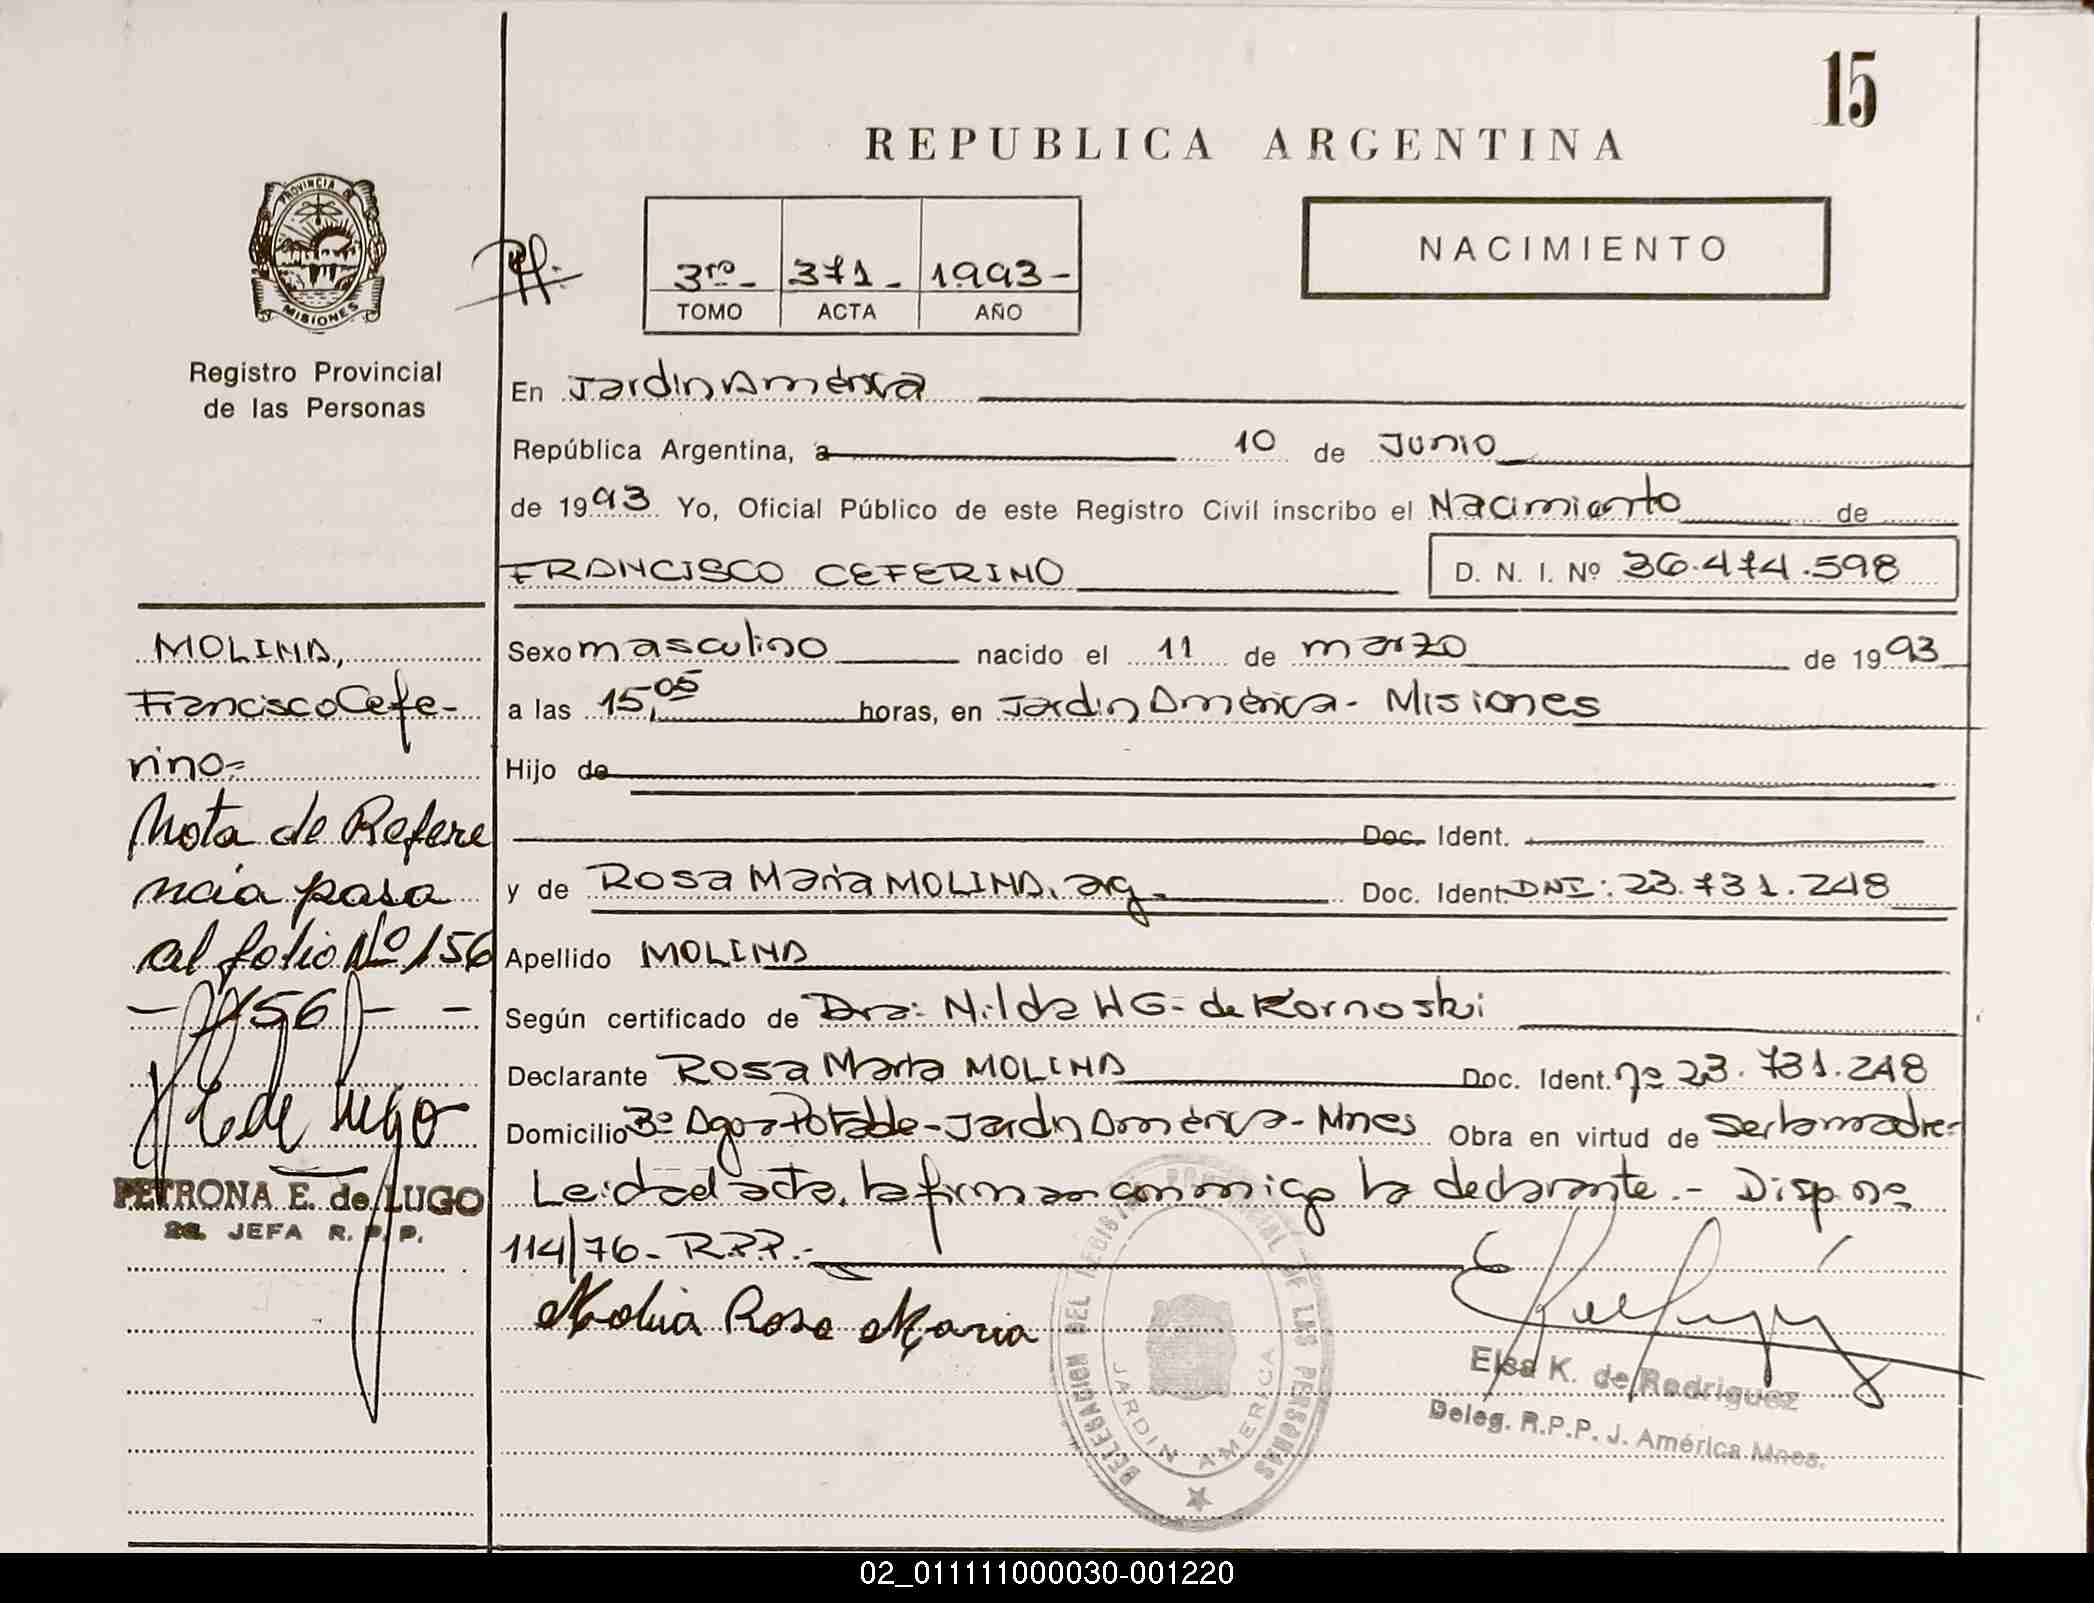 15
REPUBLICA ARGENTINA
PROVINCIA DE
MISIONES
3ro- 371- 1993-
TOMO ACTA AÑO
NACIMIENTO
Registro Provincial
de las Personas
En Jardin América
República Argentina, a 10 de Junio
de 1993 Yo, Oficial Público de este Registro Civil inscribo el Nacimiento de
FRANCISCO CEFERINO D. N. I. Nº 36.474.598
MOLINA,
Francisco Cefe-
rino=
Nota de Refere
ncia pasa
al folio Nº 156
- 156 - -
PETRONA E. de LUGO
2a. JEFA R. P. P.
Sexo masculino nacido el 11 de marzo de 1993
a las 15,05 horas, en Jardin América- Misiones
Hijo de
Doc. Ident.
y de Rosa Maria MOLINA, arg. Doc. Ident. DNI: 23.731.248
Apellido MOLINA
Según certificado de Dra: Nilda HG= de Kornoski
Declarante Rosa Maria MOLINA Doc. Ident. nº 23.731.248
Domicilio Bº Agua Potable-Jardin América-Mnes Obra en virtud de Ser la madre-
Leida el acta, la firman conmigo la declarante.- Disp nº
114/76- R.P.P.-
Molina Rosa Maria
DELEGACION DEL REGISTRO PROVINCIAL DE LAS PERSONAS
JARDIN AMERICA
Elsa K. de Rodriguez
Deleg. R.P.P. J. América Mnes.
02_011111000030-001220